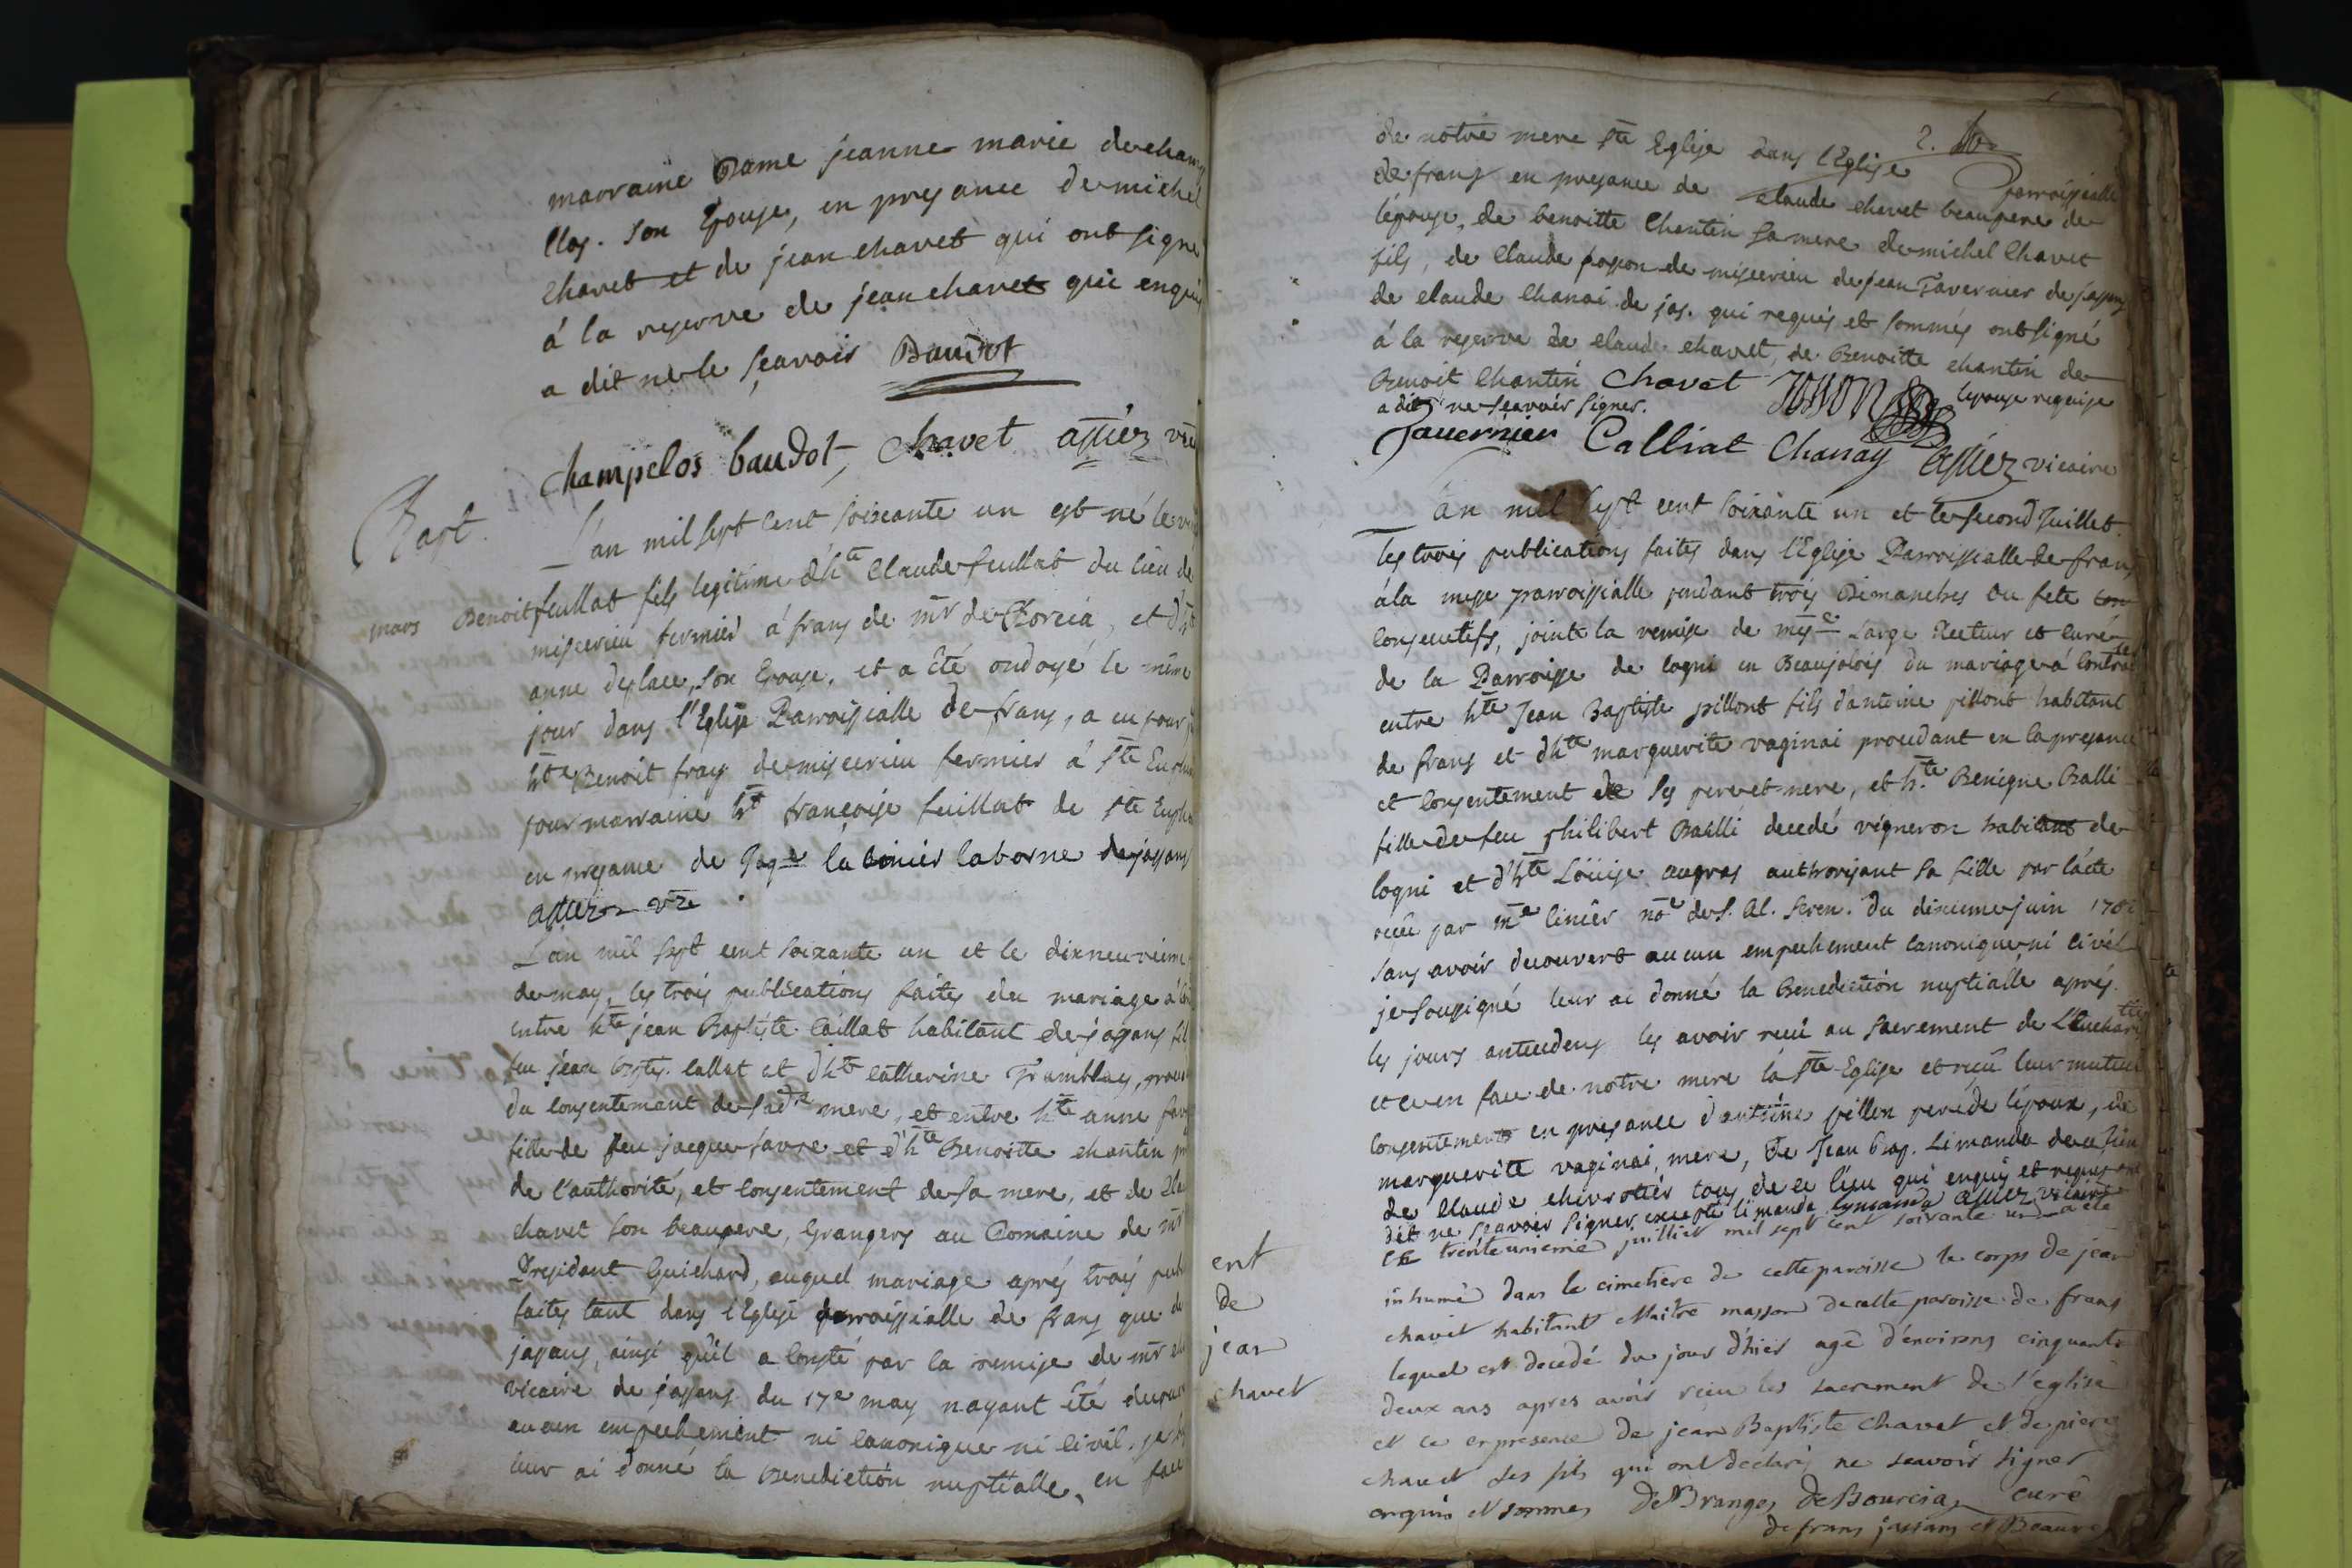 marraine Dame jeanne marie dechamp
Clos. son Epouse, en presance de michel
chavet et de jean chavet qui ont signé
á la reserve de jean chavet qui enquis
a dit ne le sçavoir Baudot
champclos baudot, chavet
Bapt.
L'an mil sept cent soixante un est né le
mars Benoit feuillat fils legitime d'hte Claude feuillat du lieu de
miserieu fermier á frans de mr de et d'hte
anne desplace, son Epouse, et a été ondoyé le même
jour dans l'Eglise Parroissialle de frans, a eu pour
hte Benoit frays de miserieu fermier á ste
pour marraine hte françoise feuillat de ste
en presance de laborne de jassans
L'an mil sept cent soixante un et le dixneuvieme
de may, les trois publications faites du mariage á
entre hte jean Baptiste caillat habitant de jassans fils
feu jean bapt. callat et d'hte catherine Tramblay,
du consentemant de sa de mere, et entre hte anne favre
fille de feu jacque favre et d'hte Benoitte chantin
de l'authorité, et consentement de sa mere, et de
chavet son beaupere, Grangers au Domaine de mr
President Guichard, auquel mariage aprés trois pub
faites tant dans l'Eglise parroissialle de frans que de
jassans, ainsi qu'il a consté par la remise de mr
vicaire de jassans du 17e may nayant été
aucun empechement ni canonique ni civil, je
leur ai donné la benediction nuptialle, en face
2.
de notre mere ste Eglise dans l'Eglise parroissialle
de frans en presance de claude chavet beaupere de
l'épouse, de benoitte Chantin sa mere de michel Chavet
fils, de Claude de miserieu de jean Tavernier de jassans
de claude Chanai de jas. qui requis et sommés ont signé
á la reserve de claude chavet, de Benoitte chantin de
Benoit Chantin chavet l'epouse requise
a dit ne sçavoir signer.
Tavernier Calliat Chanay vicaire
L'an mil sept cent soixante un et le second Juillet.
les trois publications faites dans l'Eglise Parroissialle de frans
á la messe parroissialle pendant trois Dimanches ou fete
consecutifs, jointe la remise de Large Recteur et curé
de la Parroisse de cogni en Beaujolois du mariage á contracter
entre hte Jean Baptiste pillont fils d'antoine pillont habitant
de frans et d'hte marguerite vaginai procedant en la presance
et consentement de ses pere et mere, et hte Benigne Balli
fille de feu philibert Balli decedé vigneron habitant de
cogni et d'hte Loüise augras authorisant sa fille par l'acte
reçu par me du dixieme juin
sans avoir decouvert aucun empechement canonique ni civil
je soussigné leur ai donné la Benediction nuptialle aprés
les jours antecedens les avoir reçu au sacrement de L'Eucharistie
et ce en face de notre mere la ste Eglise et reçu leur mutuel
consentement en presance d'antoine pillon pere de l'époux, de
marguerite vaginai, mere, de Jean Bap. Limanda de ce lieu
de Claude chivrotier tous de ce lieu qui enquis et requis ont
dit ne sçavoir signer excepté limanda Lymanda vicaire
ent
de
jean
chavet
le trente unieme juilliet mil sept cent soixante un a eté
inhumé dans le cimetiere de cette paroisse le corps de jean
chavet habitant Maitre masson de cette paroisse de frans
lequel est decedé du jour d'hier agé d'environs cinquante
deux ans apres avoir reçu les sacrement de l'eglise
et ce en presence de jean Baptiste chavet et de piere
chavet ses fils qui ont declaré ne scavoir signer
enquis et sommes DeBranges DeBourcia curé
de frans jassans et Beaure